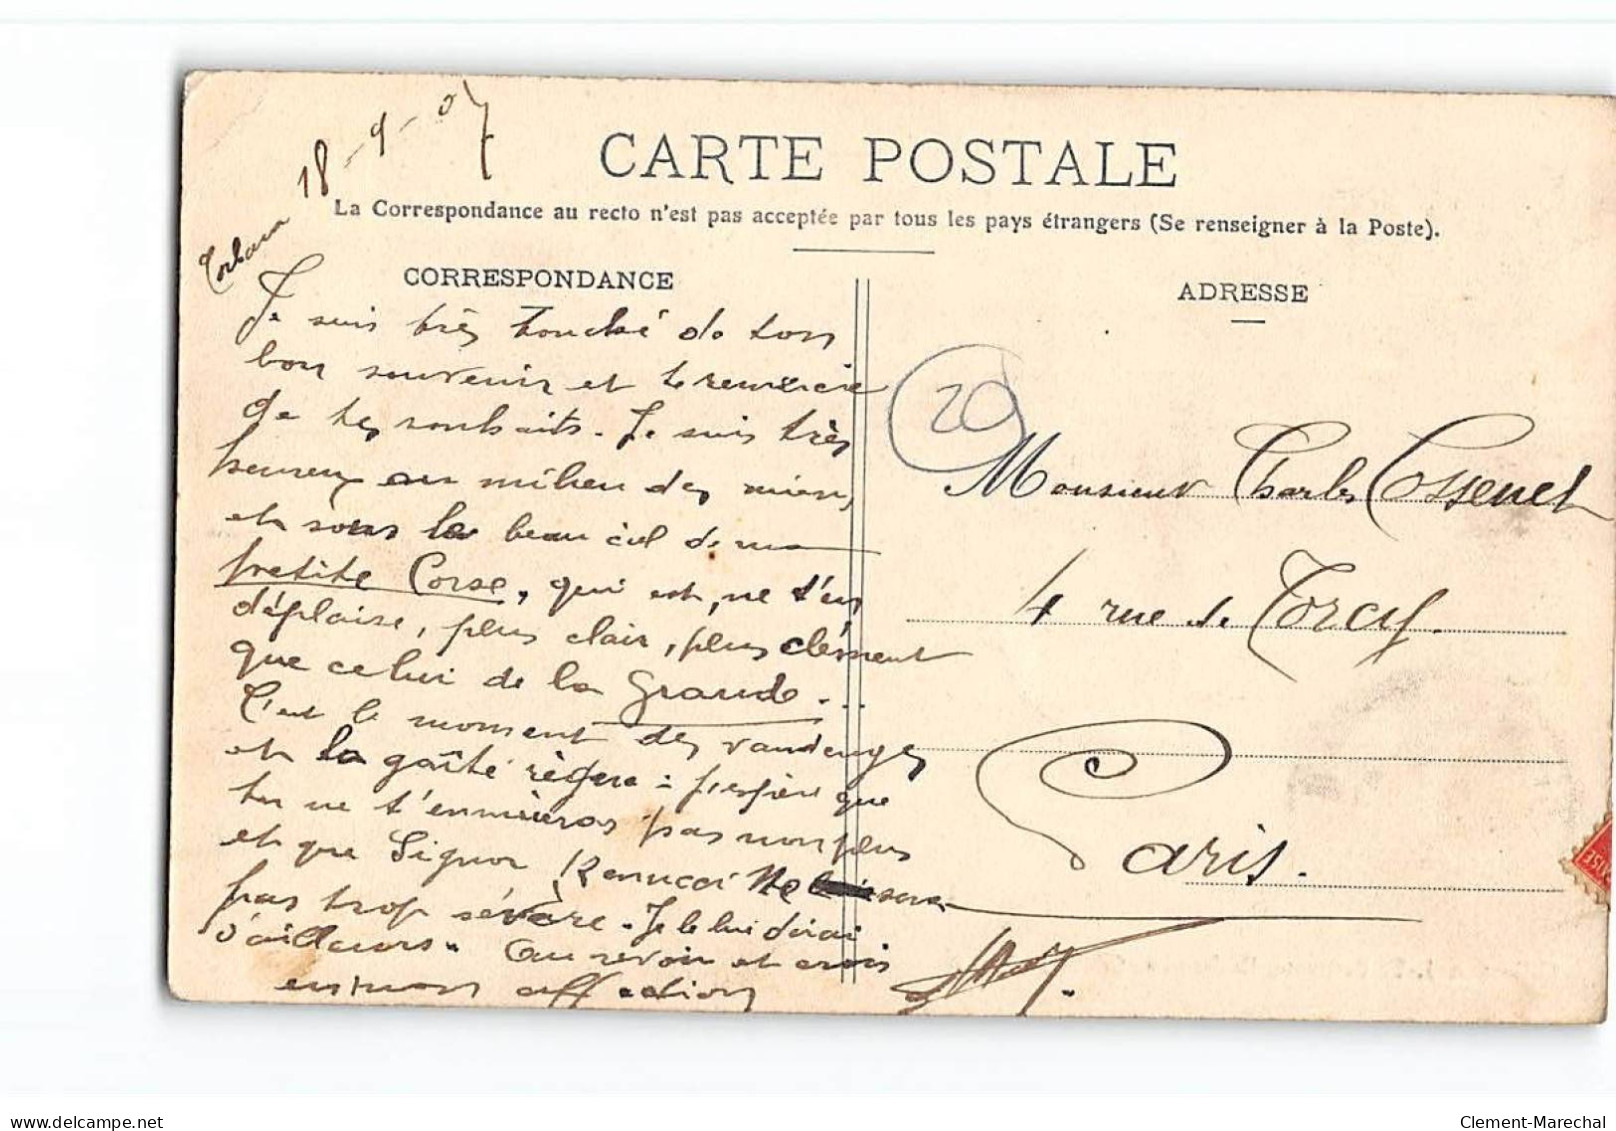 18-9-07
CARTE POSTALE
La Correspondance au recto n'est pas acceptée par tous les pays étrangers (Se renseigner à la Poste).
CORRESPONDANCE
Je suis très touché de ton
bon souvenir et te remercie
de tes souhaits. Je suis très
heureux au milieu des miens
et sous le beau ciel de ma
petite Corse, qui est, ne t'en
déplaise, plus clair, plus clément
que celui de la Grande...
C'est le moment des vandenges
et la gaîté règne : j'espère que
tu ne t'ennuieras pas non plus
et que Signor Renucci ne sera
pas trop sévère. Je le lui dirai
d'ailleurs. Au revoir et crois
en mon affection
ADRESSE
20
Monsieur Charles Cossenet
4 rue de Torcy.
Paris.
delcampe.net
Clement-Marechal